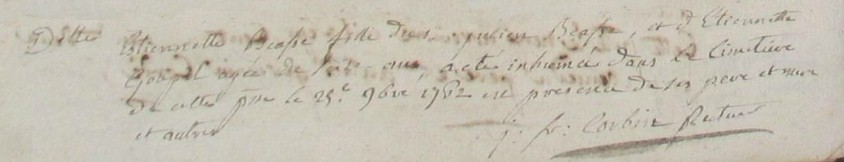 Etiennette Beasse fille du s. julien Beasse, et d'Etiennette
Goupil agée de ans, a eté inhumée dans le Cimetiere
de cette psse le 29e 9bre 1762 en presence de ses pere et mere
et autres
j: fr: Corbin Recteur